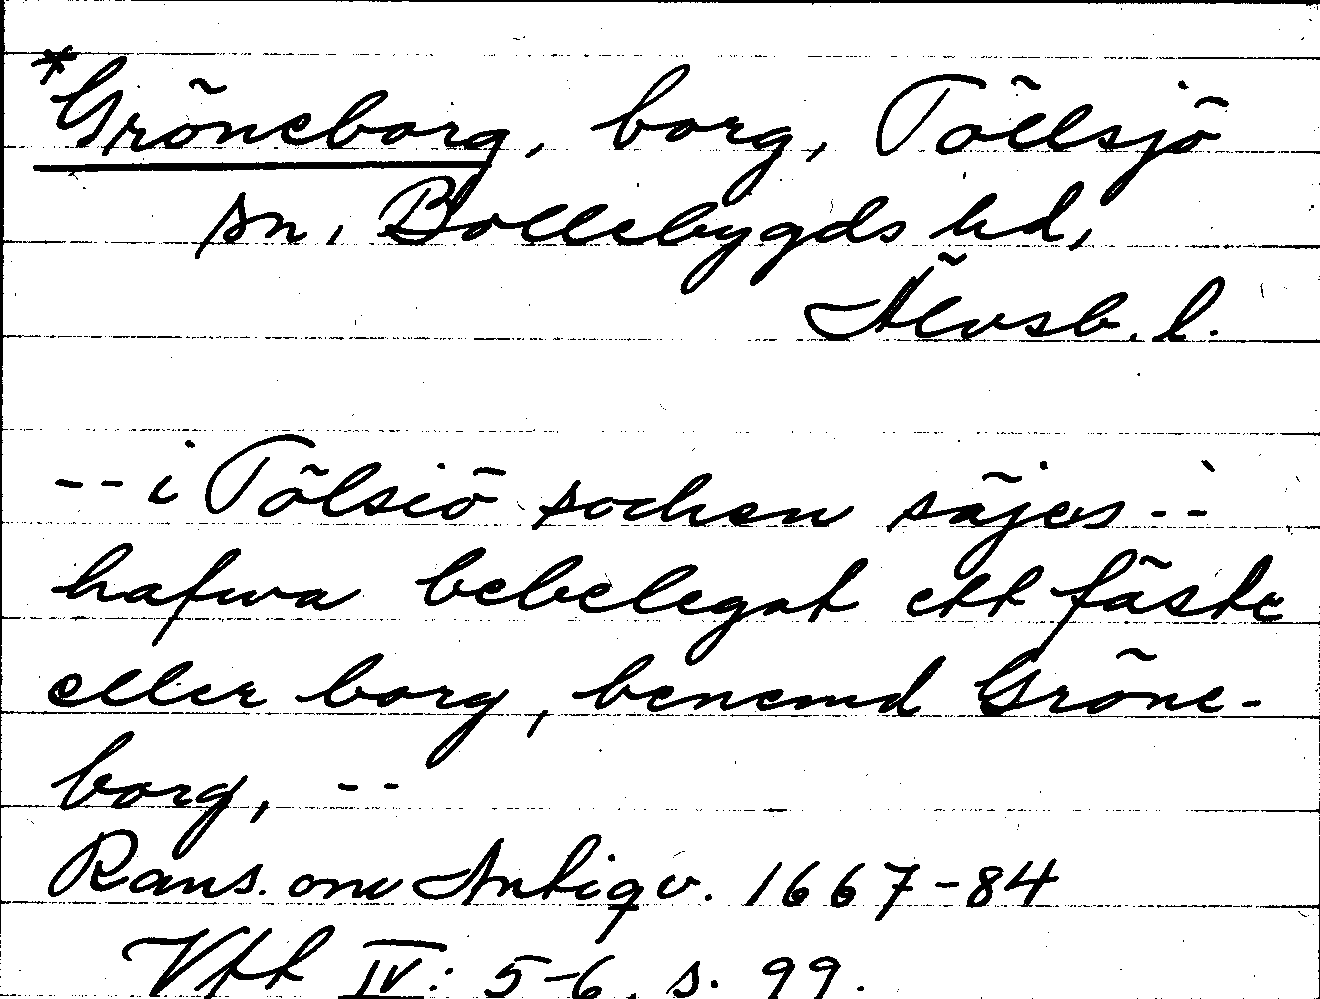 *Gröneborg, borg, Töllsjö
sn, Bollebygds hd,
Älvsb. l.
-- i Tölsiö sochen säjes --
hafwa bebelegat ett fäste
eller borg, benemd Gröne-
borg, --
Rans. om Antiqv. 1667-84
Vftt IV: 5-6, s. 99.